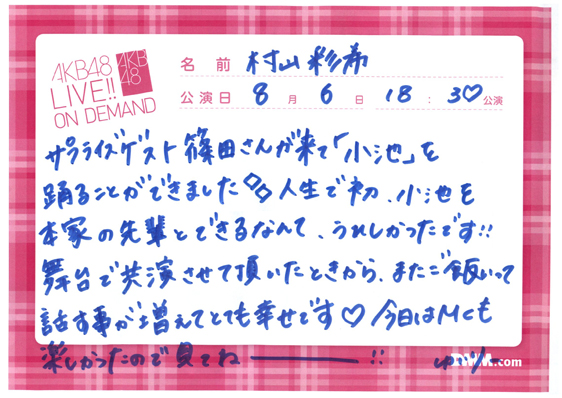 AKB48
LIVE!!
ON DEMAND
AKB
48
名前 村山彩希
公演日 8月6日 18:30♡公演
サプライズゲスト篠田さんが来て「小池」を
踊ることができました 人生で初、小池を
本家の先輩とできるなんて、うれしかったです!!
舞台で共演させて頂いたときから、またご飯いって
話す事が増えてとても幸せです♡ 今日はMCも
楽しかったので見てね ー !!
ゆいりー
.com